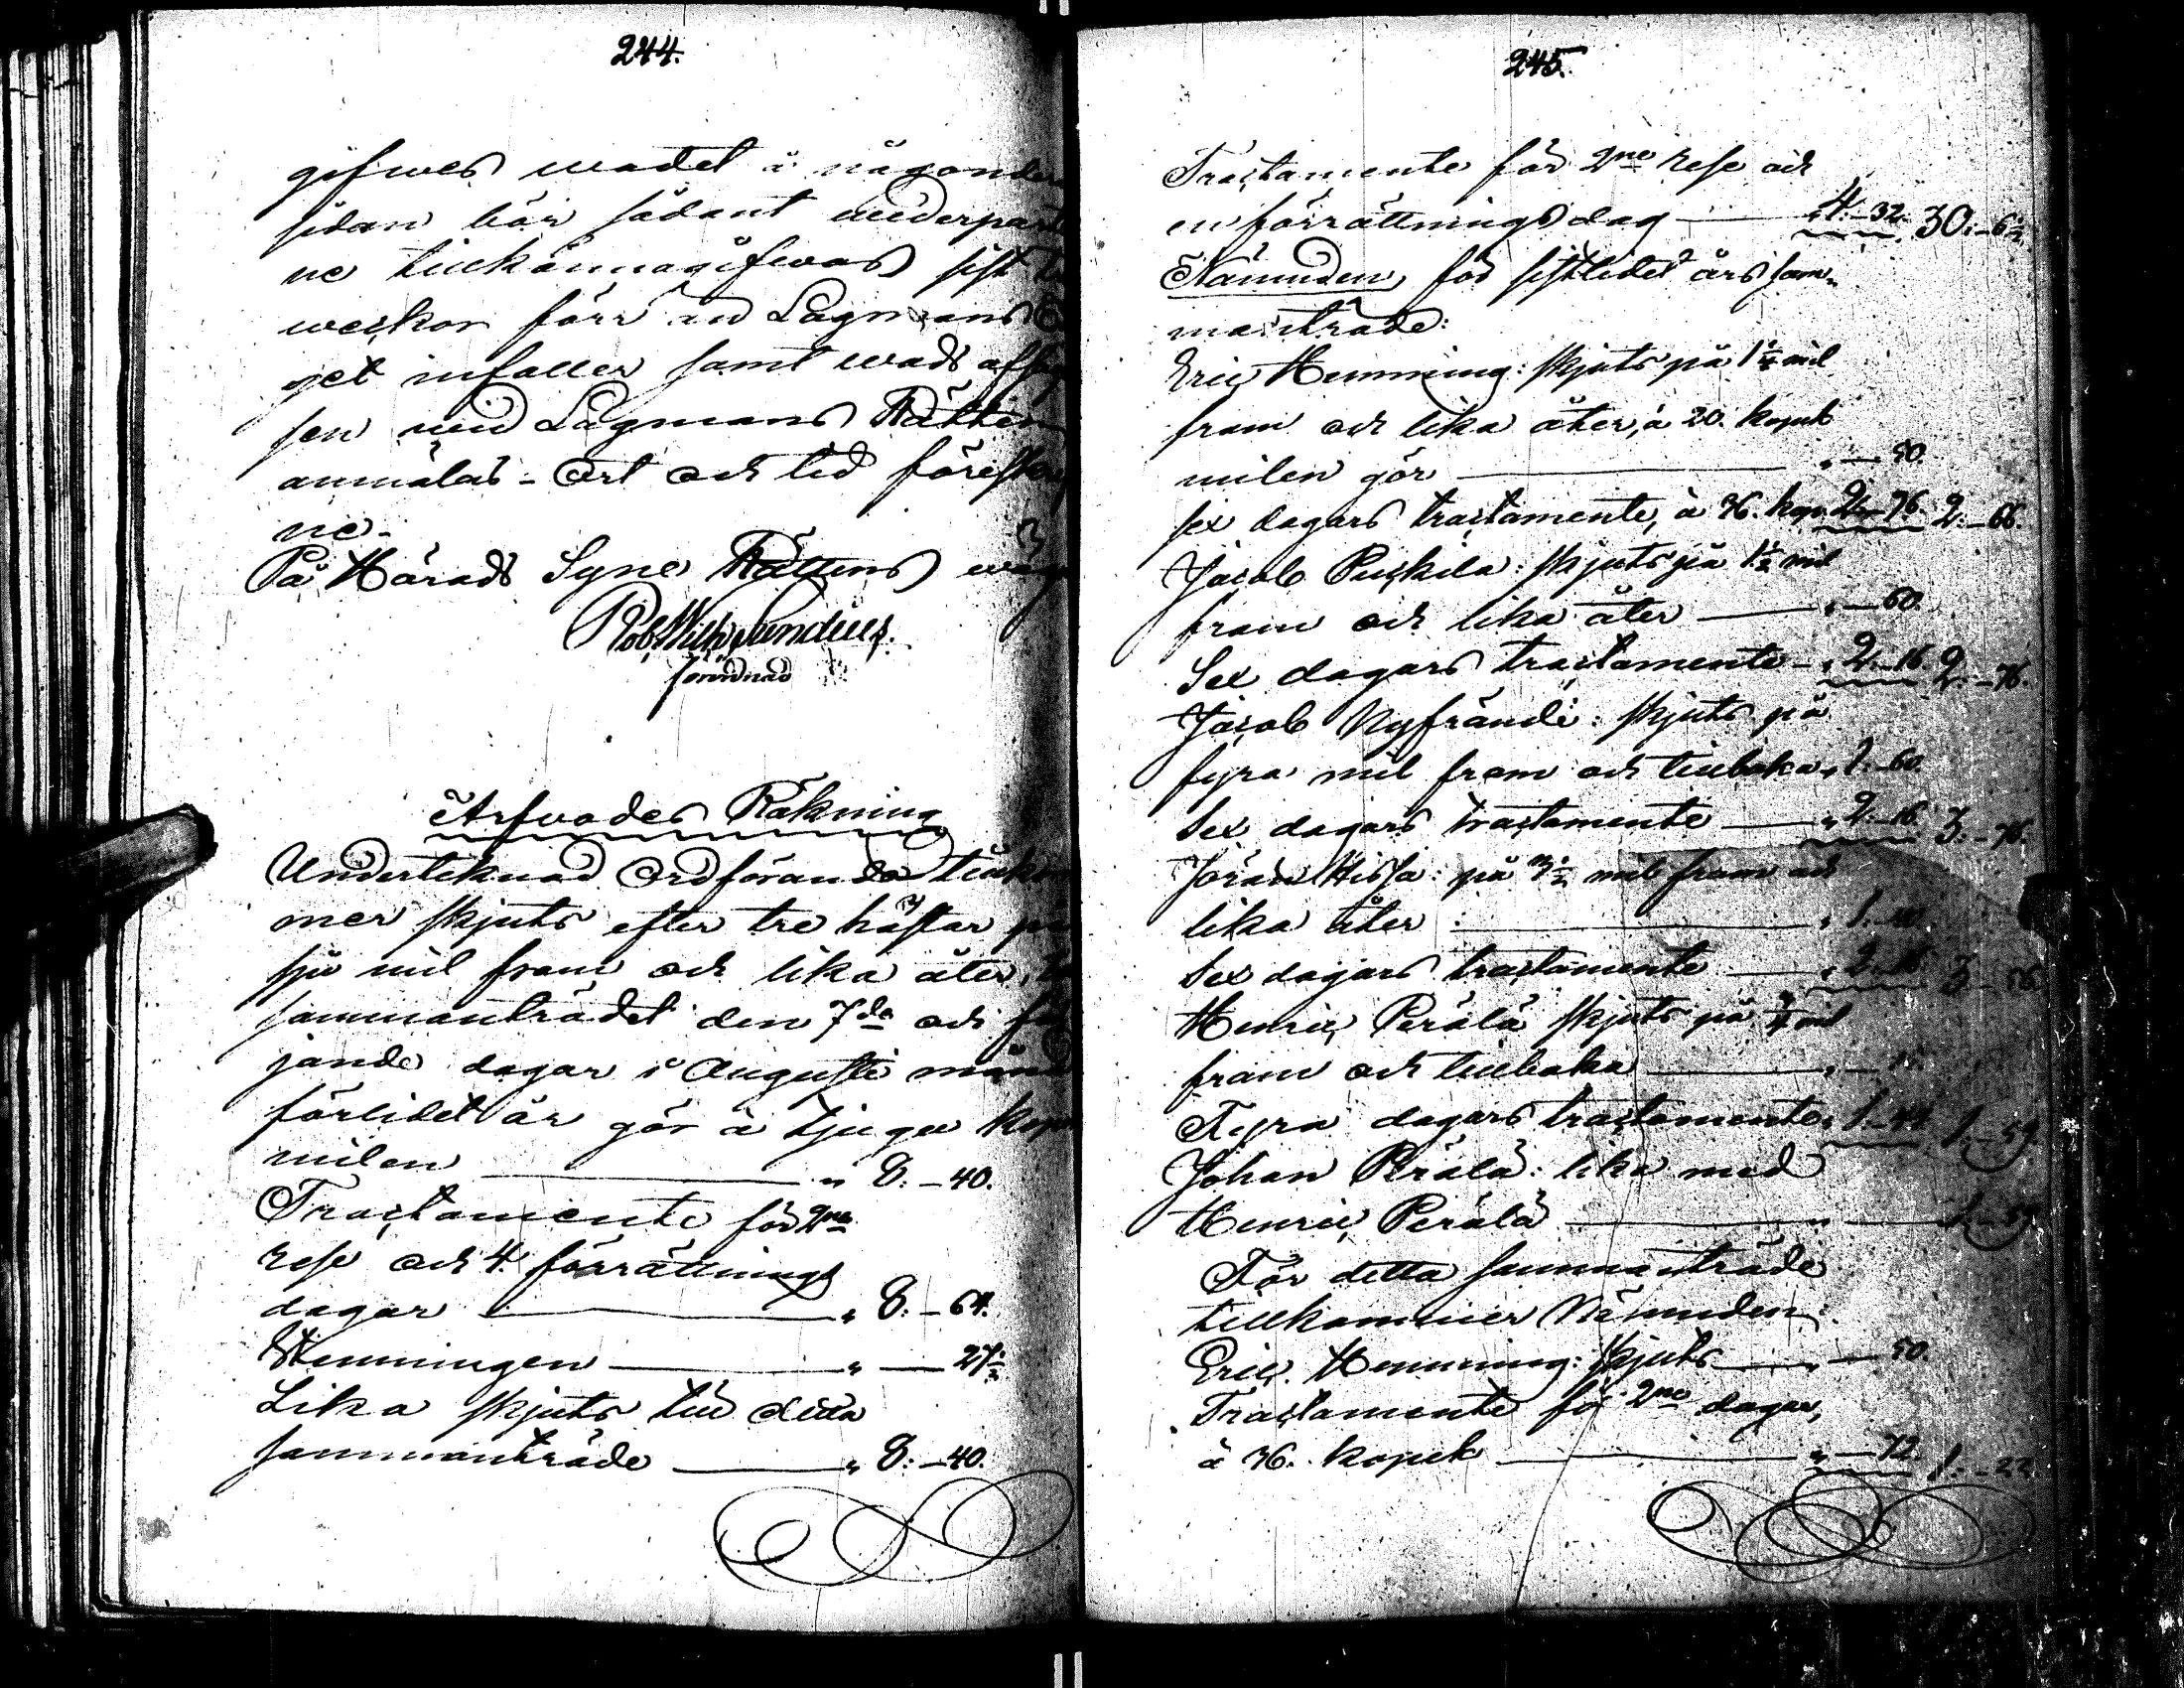 244.
gifwes wadet å någondera
sidan bör sådant underpart
ne tillkännagifwas sist
weckor förr än Lagmans
get infaller samt wads
sen wid Lagmans Rätten
anmälas - Ort och tid förestå
ne -
På Härads Syne Rättens wäg
Rob. Wilh.
förordnad
Arfvodes Räkning
Undertecknad Ordförande tillkom
mer skjuts efter tre hästar på
sju mil fram och lika åter,
sammanträdet den 7de och föl
jande dagar i Augusti månad
förlidet år gör à tjugu kop
milen " 8. - 40.
Tractamente för 2ne
rese och 4. förrättnings
dagar " 8: - 64.
Stemningen " — 27½
Lika skjuts till detta
sammanträde " 8: - 40.
245.
Tractamente för 2ne rese och
en förrättningsdag " 4: - 32. 30: - 6½
Nämnden, för sistlidet års sam-
manträde:
Eric Hemming: skjuts på 1¼ mil
fram och lika åter, à 20. kopek
milen gör " — 50.
sex dagars tractamente, à 36. kop. 2: - 16. 2: - 66.
Jacob Puskila: skjuts på 1½ mil
fram och lika åter " — 60.
Sex dagars tractamente - " 2: - 16. 2: - 76.
Jacob Nyfrände: skjuts på
fyra mil fram och tillbaka " 1: - 60.
Sex dagars tractamente " 2: - 16. 3: - 76.
Jöran Hissa: på 3½ mil fram och
lika åter " 1: - 40.
Sex dagars tractamente " 2: - 16. 3: - 56.
Henric Perälä skjuts på mil
fram och tillbaka " —
Fyra dagars tractamente " 1: - 44. 1: - 59.
Johan Perälä: lika med
Henric Perälä " 1: - 59.
För detta sammanträde
tillkommer Nämnden:
Eric Hemming: skjuts " — 50.
Tractamente för 2ne dagar,
à 36. kopek " — 72. 1: - 22.